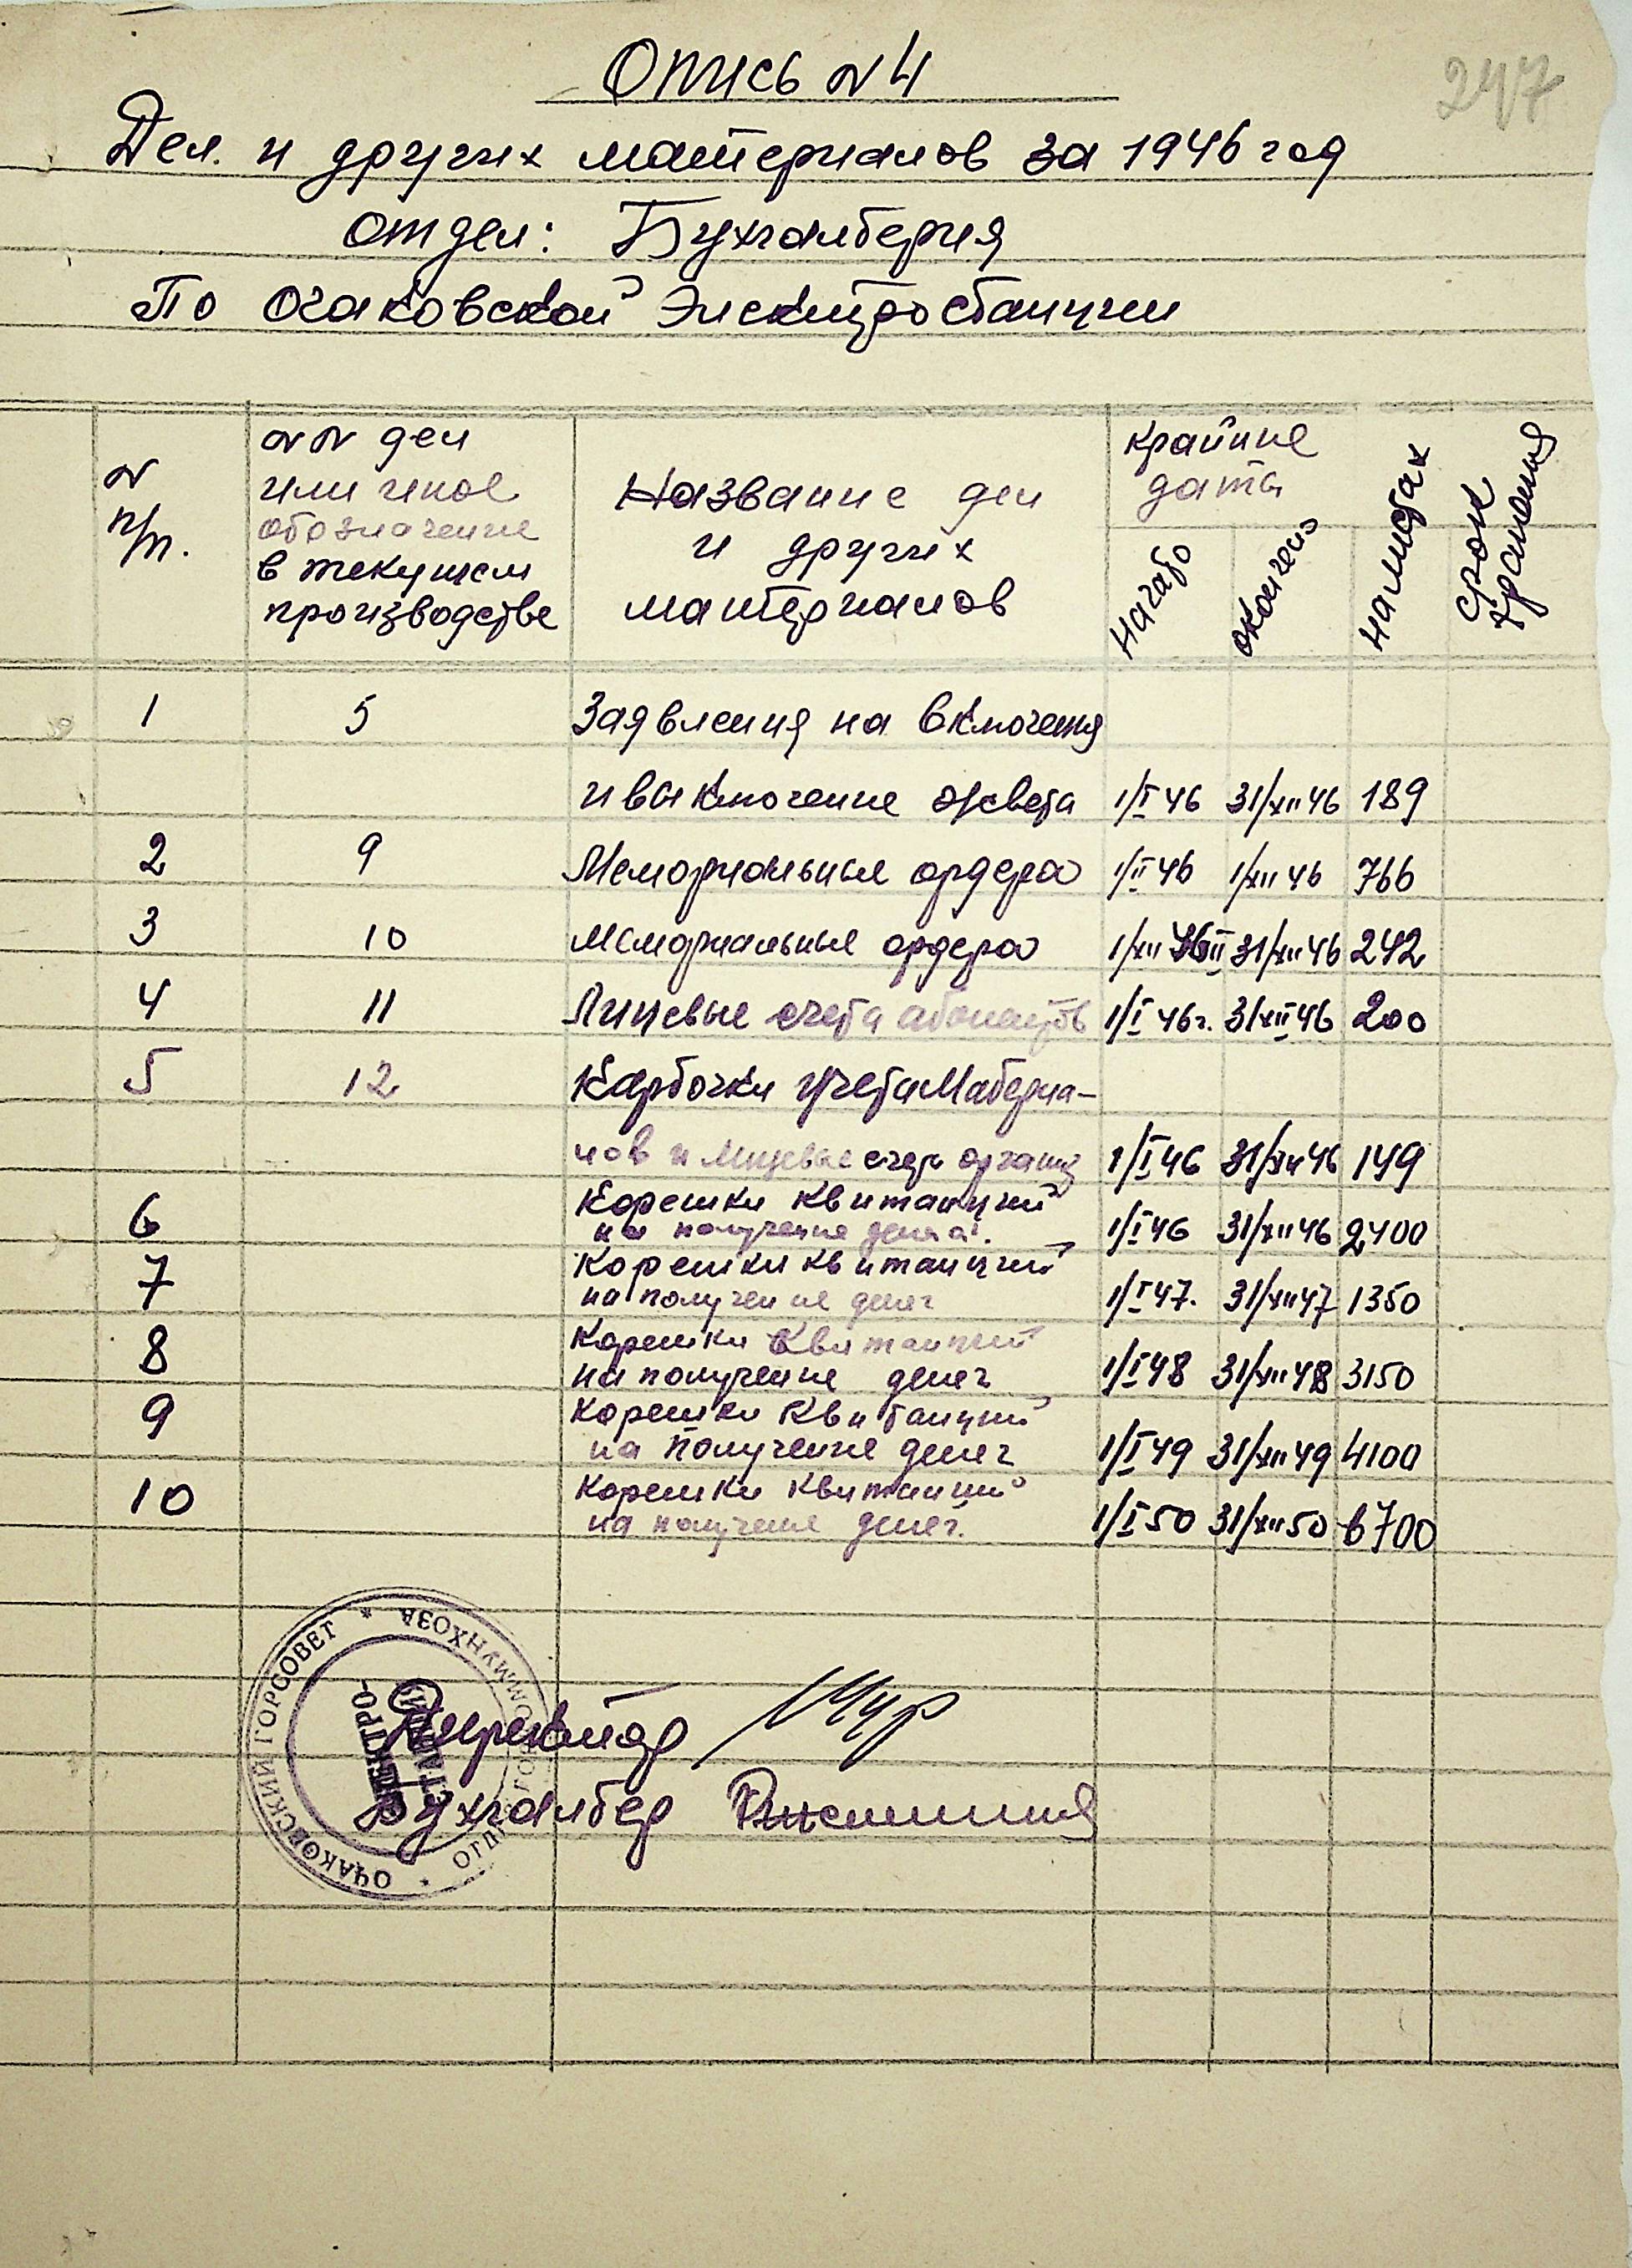 247
Опись № 4
Дел. и других материалов за 1946 год
отдел: Бухгалтерия
По Очаковской Электростанции
№
п/п.
№№ дел
или иное
обозначение
в текущем
производстве
Название дел
и других
материалов
крайние
дата
начато
окончено
на листах
срок
хранения
1 5 Заявления на включения
и выключение света 1/I 46 31/XII 46 189
2 9 Мемориальные ордера 1/II 46 1/XII 46 766
3 10 Мемориальные ордера 1/XII 46 31/XII 46 242
4 11 Лицевые счета абонентов 1/I 46г. 31/XII 46 200
5 12 Карточки учета Материа-
лов и лицевые счета 1/I 46 31/XII 46 149
6 Корешки квитанций
на получение денег. 1/I 46 31/XII 46 2400
7 Корешки квитанций
на получение денег 1/I 47. 31/XII 47 1350
8 Корешки квитанций
на получение денег 1/I 48 31/XII 48 3150
9 Корешки квитанций
на получение денег 1/I 49 31/XII 49 4100
10 Корешки квитанций
на получение денег. 1/I 50 31/XII 50 6700
Директор
Бухгалтер
ОЧАКОВСКИЙ ГОРСОВЕТ * ОТДЕЛ КОММУНХОЗА *
ЭЛЕКТРО-
СТАНЦИЯ